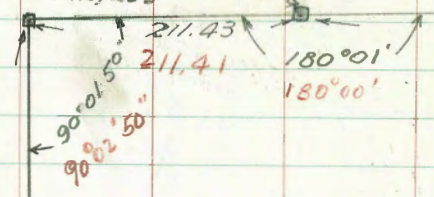 211.43
211.41
180°01'
180°00'
90°01'50"
90°02'50"